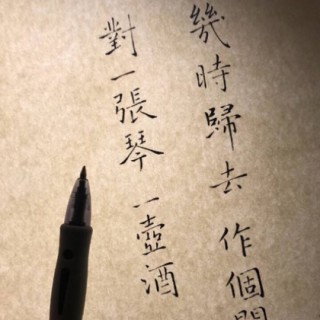 幾時歸去 作個
對一張琴 一壺酒